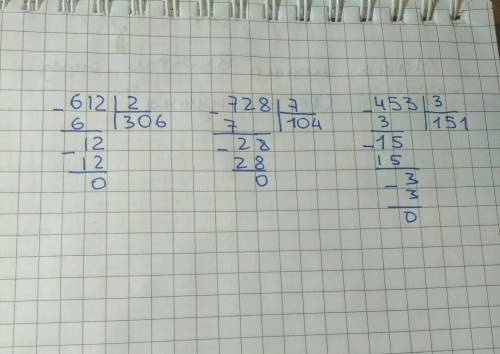 -612|2
6 |306
-12
12
0
-728|7
7 |104
-28
28
0
-453|3
3 |151
-15
15
-3
3
0